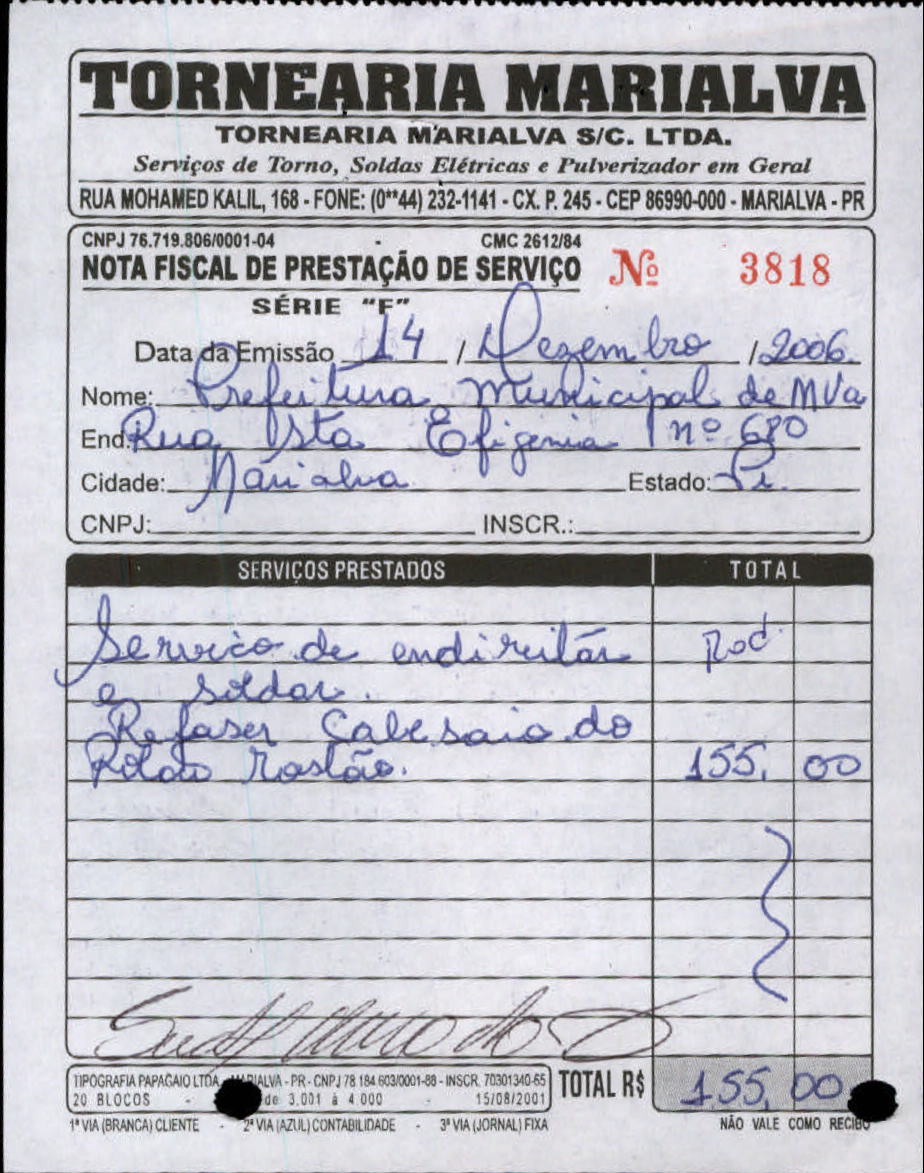 TORNEARIA MARIALVA
TORNEARIA MARIALVA S/C. LTDA.
Serviços de Torno, Soldas Elétricas e Pulverizador em Geral
RUA MOHAMED KALIL, 168 - FONE: (0**44) 232-1141 - CX. P. 245 - CEP 86990-000 - MARIALVA - PR
CNPJ 76.719.806/0001-04 CMC 2612/84
NOTA FISCAL DE PRESTAÇÃO DE SERVIÇO Nº 3818
SÉRIE "F"
Data da Emissão 14 / Dezembro / 2006
Nome: Prefeitura Municipal de MVa
End. Rua Sta Efigenia nº 680
Cidade: Marialva Estado: Pr.
CNPJ: INSCR.:
SERVIÇOS PRESTADOS TOTAL
Servico de endireitar
e soldar.
Refaser Cabesaio do
Rolao Rastão. 155,00
TIPOGRAFIA PAPAGAIO LTDA. - PR - CNPJ 78 184 603/0001-88 - INSCR. 70301340-65
20 BLOCOS - de 3.001 à 4.000 15/08/2001
TOTAL R$ 155,00
1ª VIA (BRANCA) CLIENTE - 2ª VIA (AZUL) CONTABILIDADE - 3ª VIA (JORNAL) FIXA
NÃO VALE COMO RECIBO